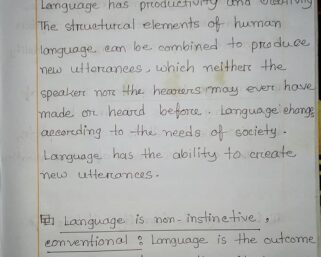 Language has productivity and creativity
The structural elements of human
language can be combined to produce
new utterances, which neither the
speaker nor the hearers may ever have
made or heard before. Language change
according to the needs of society.
Language has the ability to create
new utterances.
Language is non-instinctive,
conventional: Language is the outcome